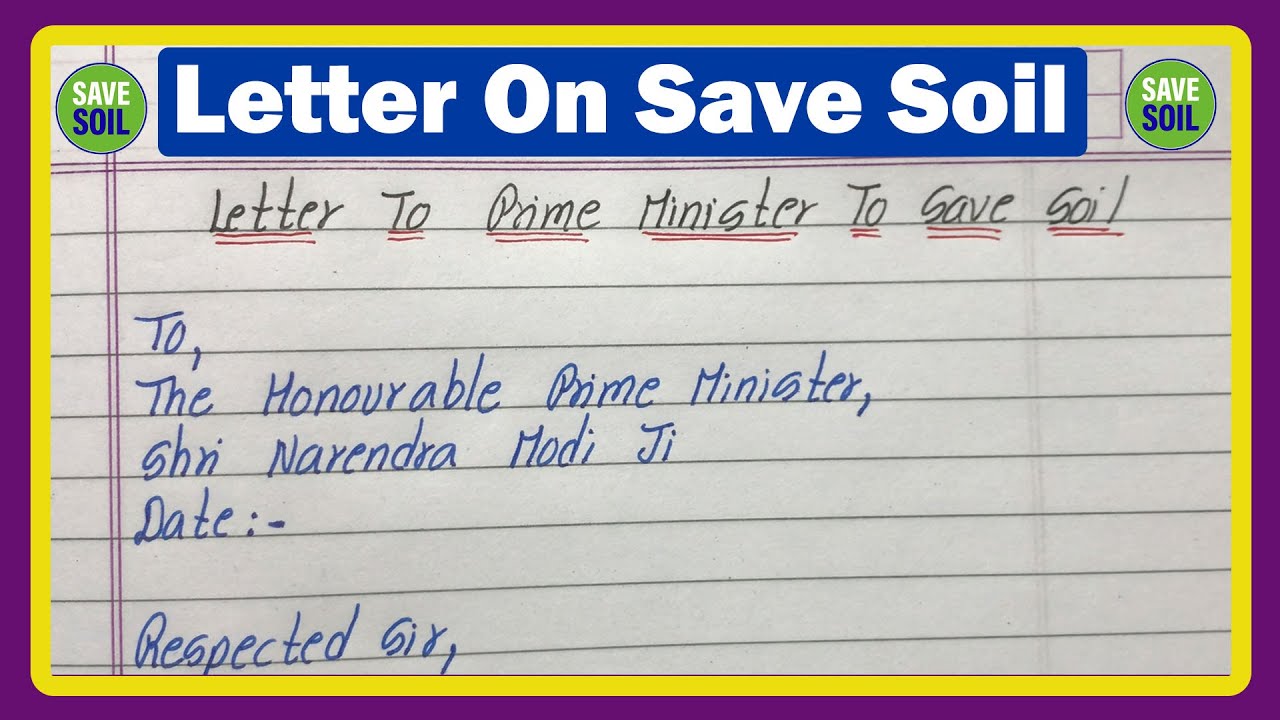 Letter On Save Soil
SAVE
SOIL
SAVE
SOIL
Letter To Prime Minister To Save Soil
To,
The Honourable Prime Minister,
Shri Narendra Modi Ji
Date:-
Respected Sir,